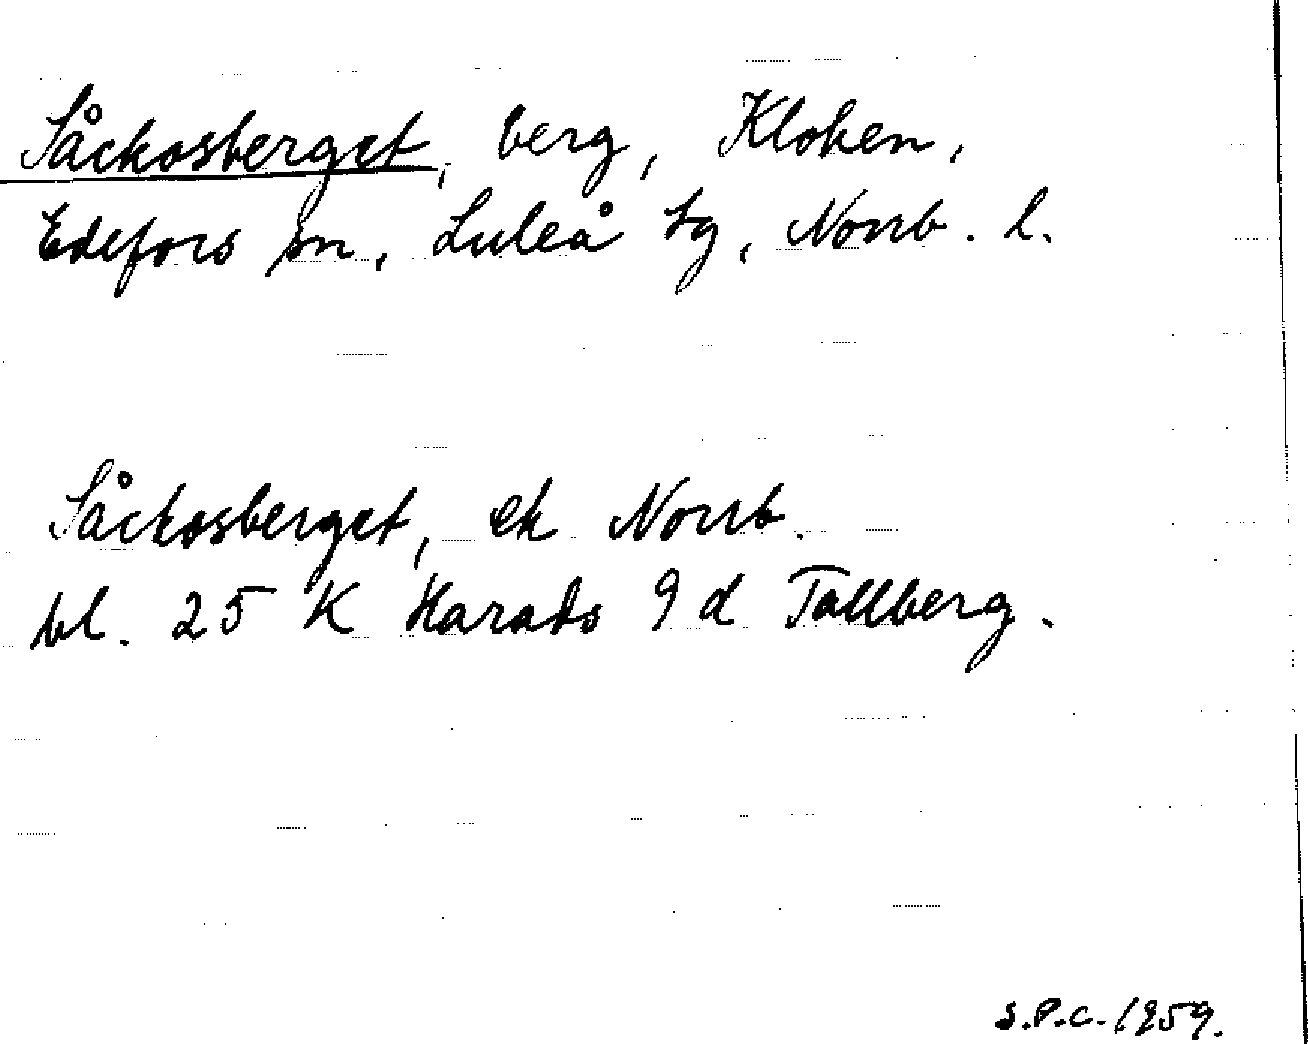 Såckosberget, berg, Kloken,
Edefors sn, Luleå tg, Norrb. l.
Såckosberget, ek Norrb.
bl. 25 K Harads 9 d Tallberg.
S.P.C. 1959.